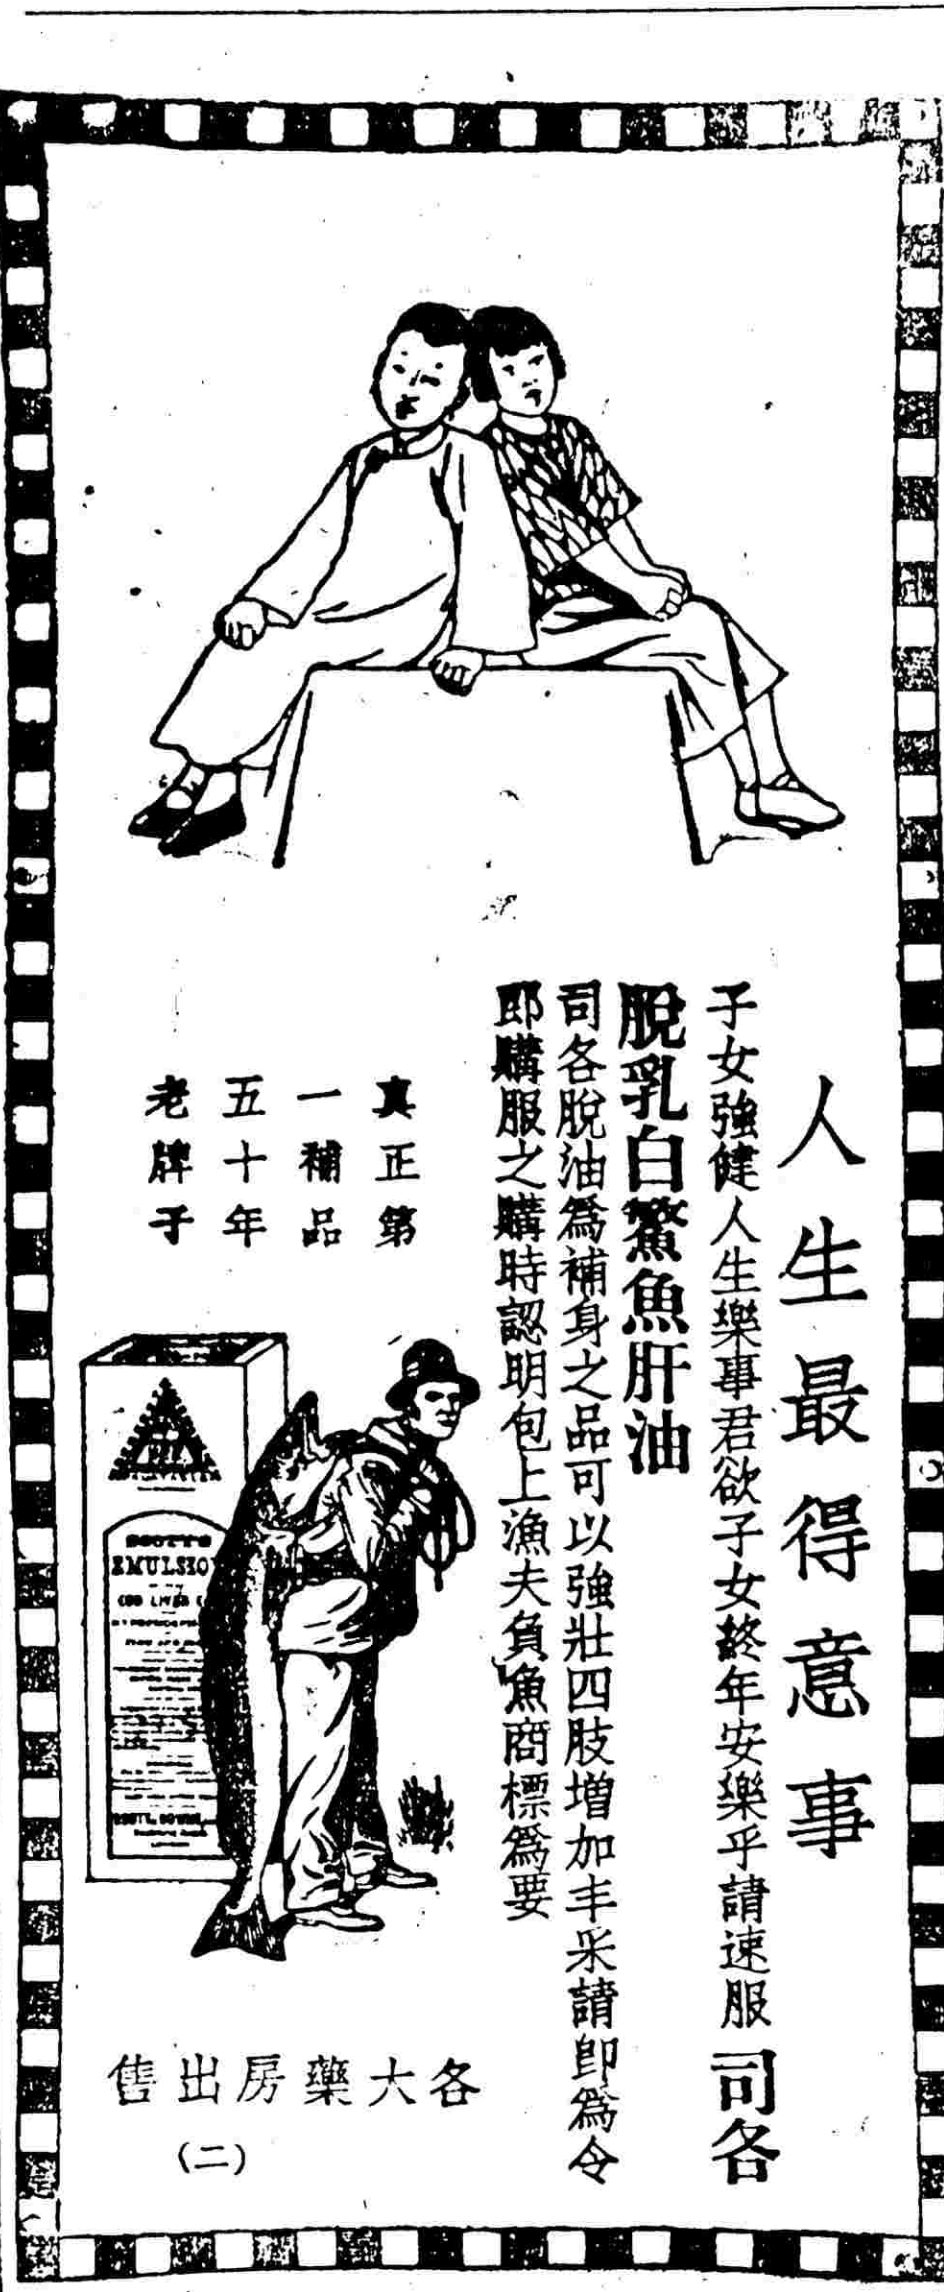 人生最得意事
子女強健人生樂事君欲子女終年安樂乎請速服司各
脫乳白鰵魚肝油
司各脫油爲補身之品可以強壯四肢增加丰采請卽爲令
郎購服之購時認明包上漁夫負魚商標爲要
真正第
一補品
五十年
老牌子
SCOTT'S
EMULSION
COD LIVER
各大藥房出售
(二)